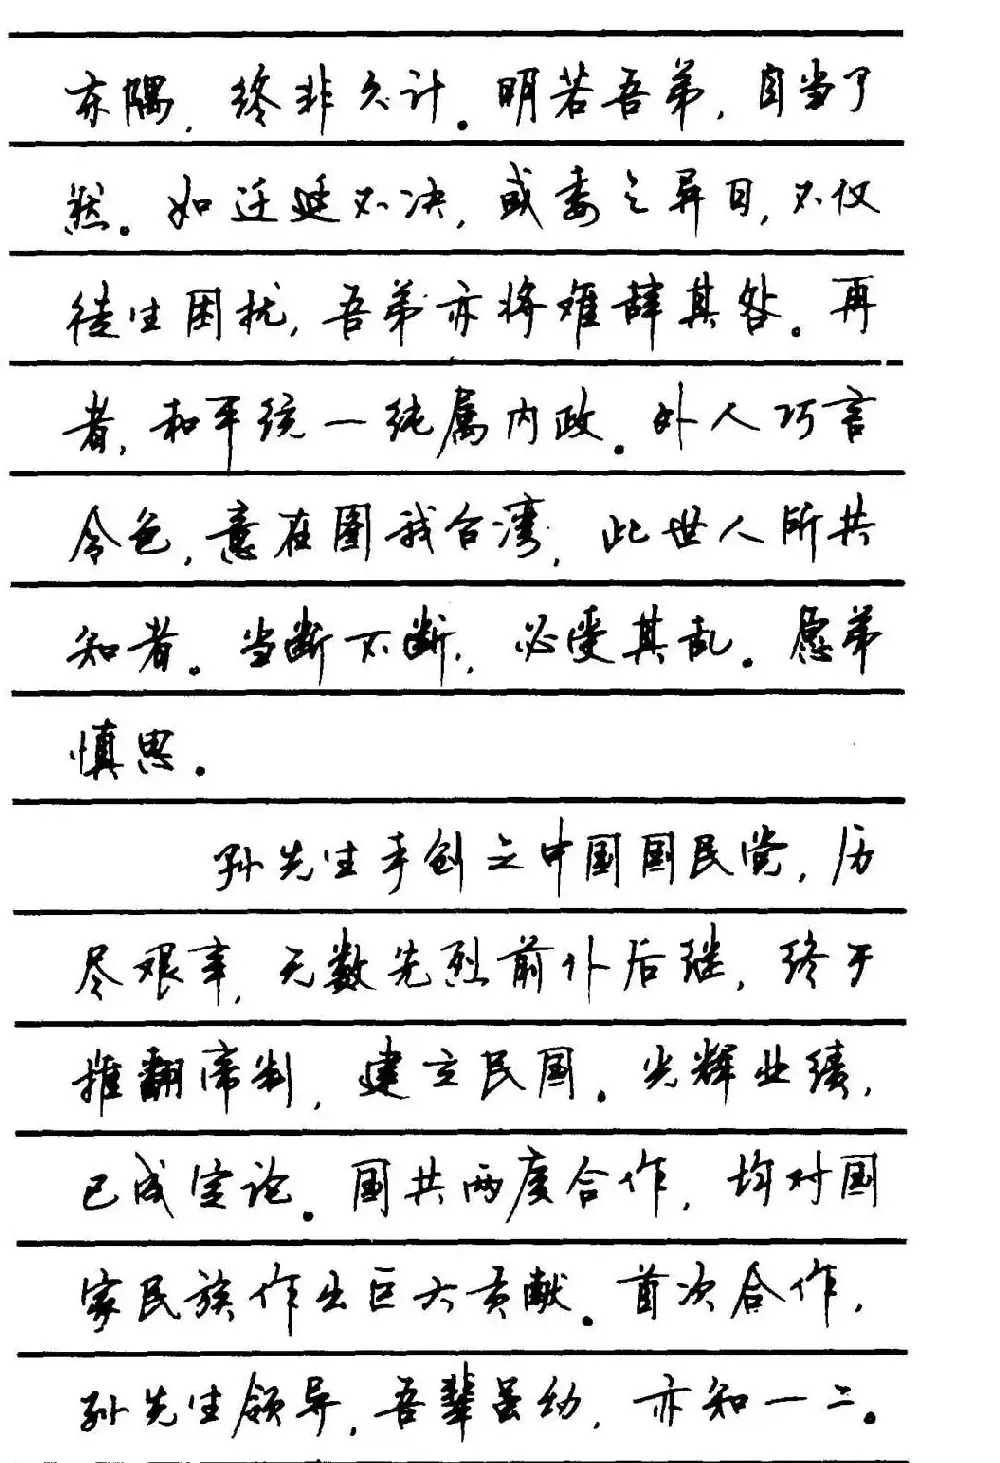 东隅，终非久计。明若吾弟，自当了
然。如迁延不决，或委之异日，不仅
徒生困扰，吾弟亦将难辞其咎。再
者，和平统一纯属内政。外人巧言
令色，意在图我台湾，此世人所共
知者。当断不断，必受其乱。愿弟
慎思。
孙先生手创之中国国民党，历
尽艰辛，无数先烈前仆后继，终于
推翻帝制，建立民国。光辉业绩，
已成定论。国共两度合作，均对国
家民族作出巨大贡献。首次合作，
孙先生领导，吾辈虽幼，亦知一二。